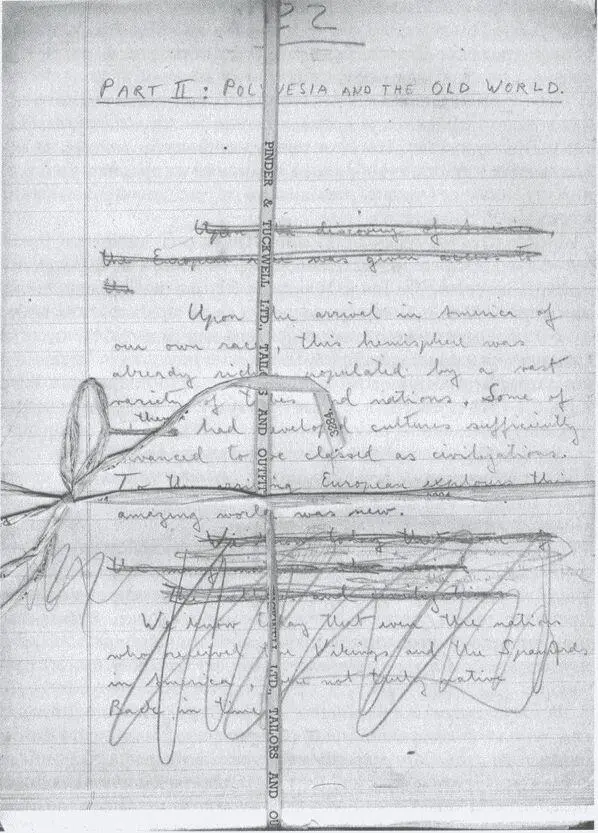 22
PART II: POLYNESIA AND THE OLD WORLD.
Upon the discovery of America
the European race was given access to
the
Upon the arrival in America of
our own race, this hemisphere was
already richly populated by a vast
variety of tribes and nations. Some of
them had developed cultures sufficiently
advanced to be classed as civilizations.
To the arriving European explorers this
amazing world was new.
We know today that
the
and civilizations
We know today that even the nations
who received the Vikings and the Spaniards
in America, were not truly native
Back in time
PINDER & TUCKWELL LTD., TAILORS AND OUTFIT
LTD., TAILORS AND OU
3284